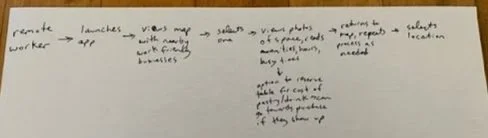 remote worker
launches app
views map with nearby work friendly businesses
selects one
views photos of space, reads amenities, hours, busy times
option to reserve table for cost of pastry/drink → can go towards purchase if they show up
returns to map, repeats process as needed
selects location